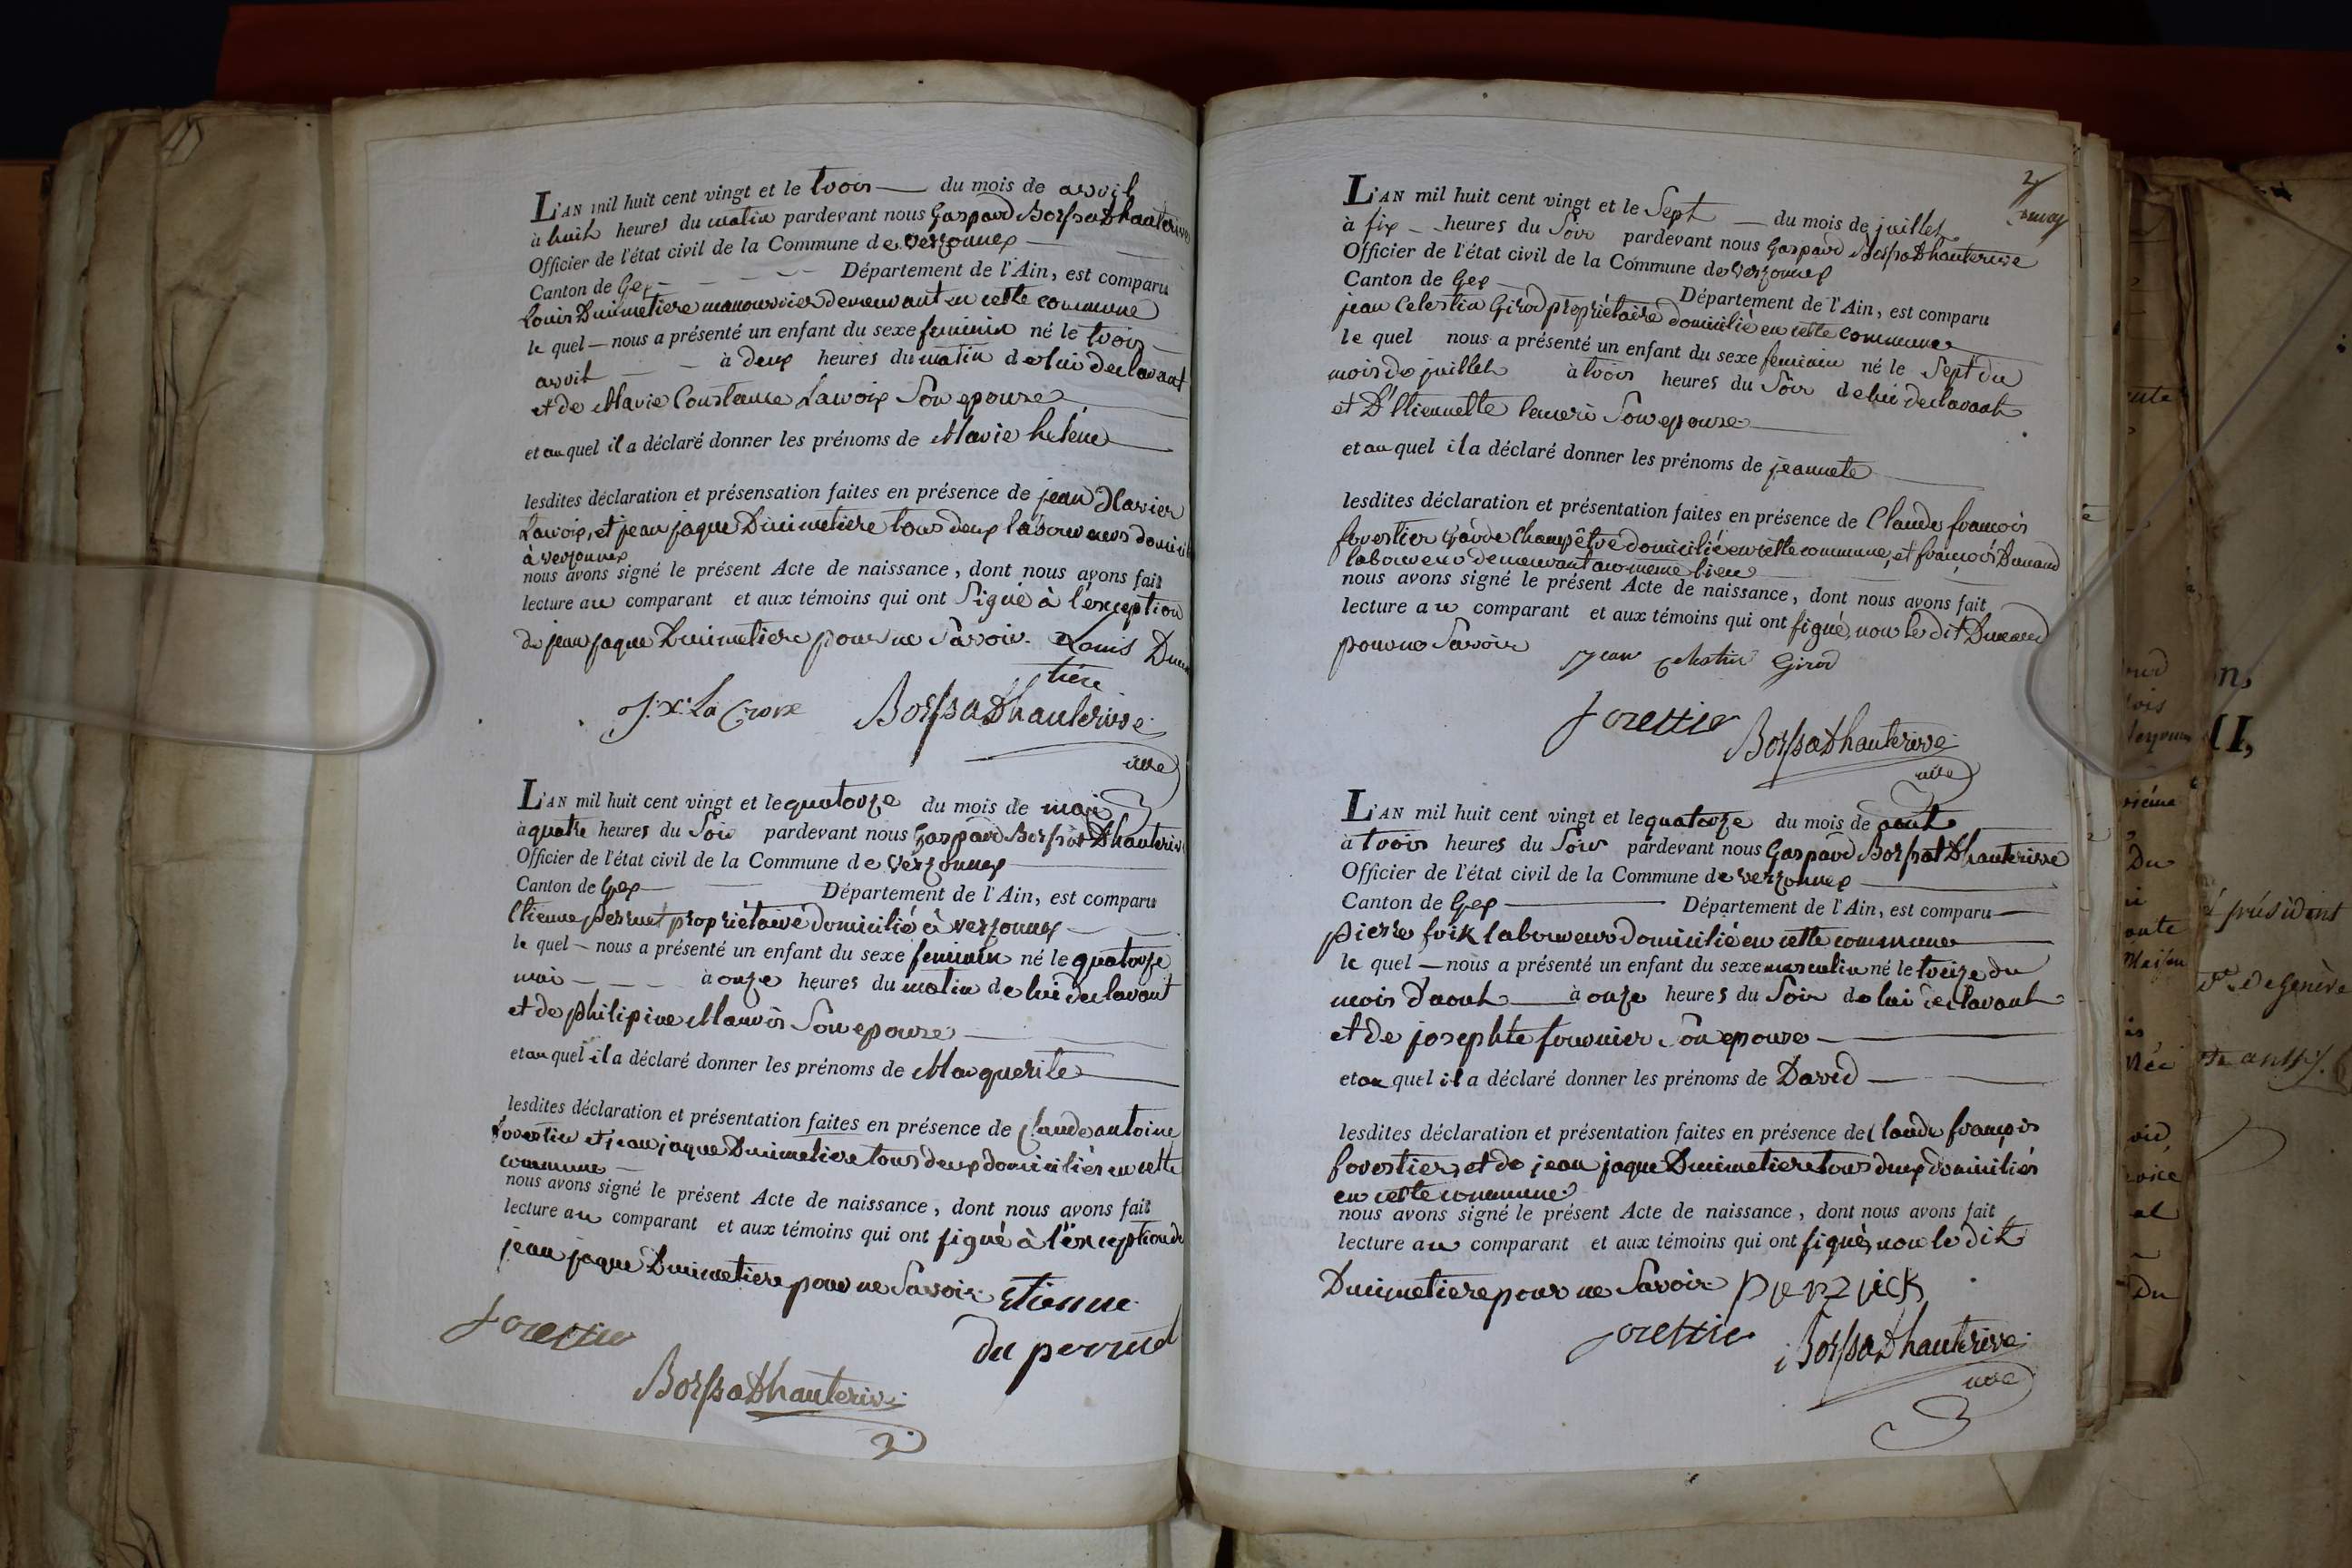 L'AN mil huit cent vingt et le trois du mois de avril
à huit heures du matin pardevant nous Gaspard Borssat Dhauterive
Officier de l'état civil de la Commune de Versonnex
Canton de Gex Département de l'Ain, est comparu
Louis Duimetiere manouvrier demeurant en cette commune
le quel nous a présenté un enfant du sexe feminin né le trois
avril à deux heures du matin de lui declarant
et de Marie Constance Lacroix Son epouse
et au quel il a déclaré donner les prénoms de Marie helene
lesdites déclaration et présensation faites en présence de jean Xavier
Lacroix, et jean jaque Duimetiere tous deux laboureurs domicil
à versonnex
nous avons signé le présent Acte de naissance, dont nous avons fait
lecture au comparant et aux témoins qui ont Signé à l'exception
de jean jaque Duimetiere pour ne Savoir. Louis Dui
tiere
J. X. La Croix Borssat Dhauterive
L'AN mil huit cent vingt et le quatorze du mois de mai
à quatre heures du Soir pardevant nous Gaspard Borssat Dhauterive
Officier de l'état civil de la Commune de Versonnex
Canton de Gex Département de l'Ain, est comparu
Etienne perrut propriétaire domicilié à versonnex
le quel nous a présenté un enfant du sexe feminin né le quatorze
mai à onze heures du matin de lui declarant
et de philipine Son epouse
et au quel il a déclaré donner les prénoms de Marguerite
lesdites déclaration et présentation faites en présence de Claude antoine
forestier et jean jaque Duimetiere tous deux domiciliés en cette
commune
nous avons signé le présent Acte de naissance, dont nous avons fait
lecture au comparant et aux témoins qui ont signé à l'exception de
jean jaque Duimetiere pour ne Savoir. Etienne
du perrut
forestier
Borssat Dhauterive
2
L'AN mil huit cent vingt et le Sept du mois de juillet
à six heures du Soir pardevant nous Gaspard Borssat Dhauterive
Officier de l'état civil de la Commune de Versonnex
Canton de Gex Département de l'Ain, est comparu
jean Celestin Girod propriétaire domicilié en cette commune
le quel nous a présenté un enfant du sexe feminin né le Sept du
mois de juillet à trois heures du Soir de lui declarant
et D'Etiennette Son epouse
et au quel il a déclaré donner les prénoms de jeannete
lesdites déclaration et présentation faites en présence de Claude françois
forestier Garde Champêtre domicilié en cette commune, et françois Dunand
laboureur demeurant au meme lieu
nous avons signé le présent Acte de naissance, dont nous avons fait
lecture au comparant et aux témoins qui ont signé, non le dit Dunand
pour ne Savoir jean celestin Girod
forestier Borssat Dhauterive
L'AN mil huit cent vingt et le quatorze du mois de aout
à trois heures du Soir pardevant nous Gaspard Borssat Dhauterive
Officier de l'état civil de la Commune de Versonnex
Canton de Gex Département de l'Ain, est comparu
pierre laboureur domicilié en cette commune
le quel nous a présenté un enfant du sexe masculin né le treize du
mois d'aout à onze heures du Soir de lui declarant
et de josephte fournier Son epouse
et au quel il a déclaré donner les prénoms de David
lesdites déclaration et présentation faites en présence de Claude françois
forestier, et de jean jaque Duimetiere tous deux domiciliés
en cette commune.
nous avons signé le présent Acte de naissance, dont nous avons fait
lecture au comparant et aux témoins qui ont signé, non le dit
Duimetiere pour ne Savoir
forestier Borssat Dhauterive
président
de Genève